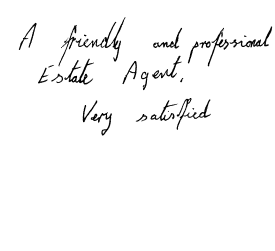 A friendly and professional
Estate Agent,
Very satisfied